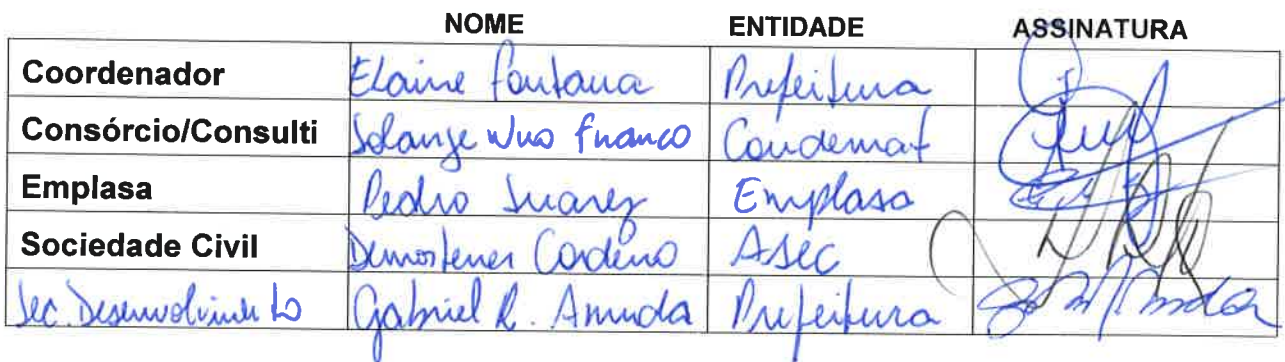 NOME ENTIDADE ASSINATURA
Coordenador Elaine Fontana Prefeitura
Consórcio/Consulti Solange Wuo Franco Condemat
Emplasa Pedro Suarez Emplasa
Sociedade Civil Demostenes Cordeiro Asec
Sec. Desenvolvimento Gabriel R. Arruda Prefeitura